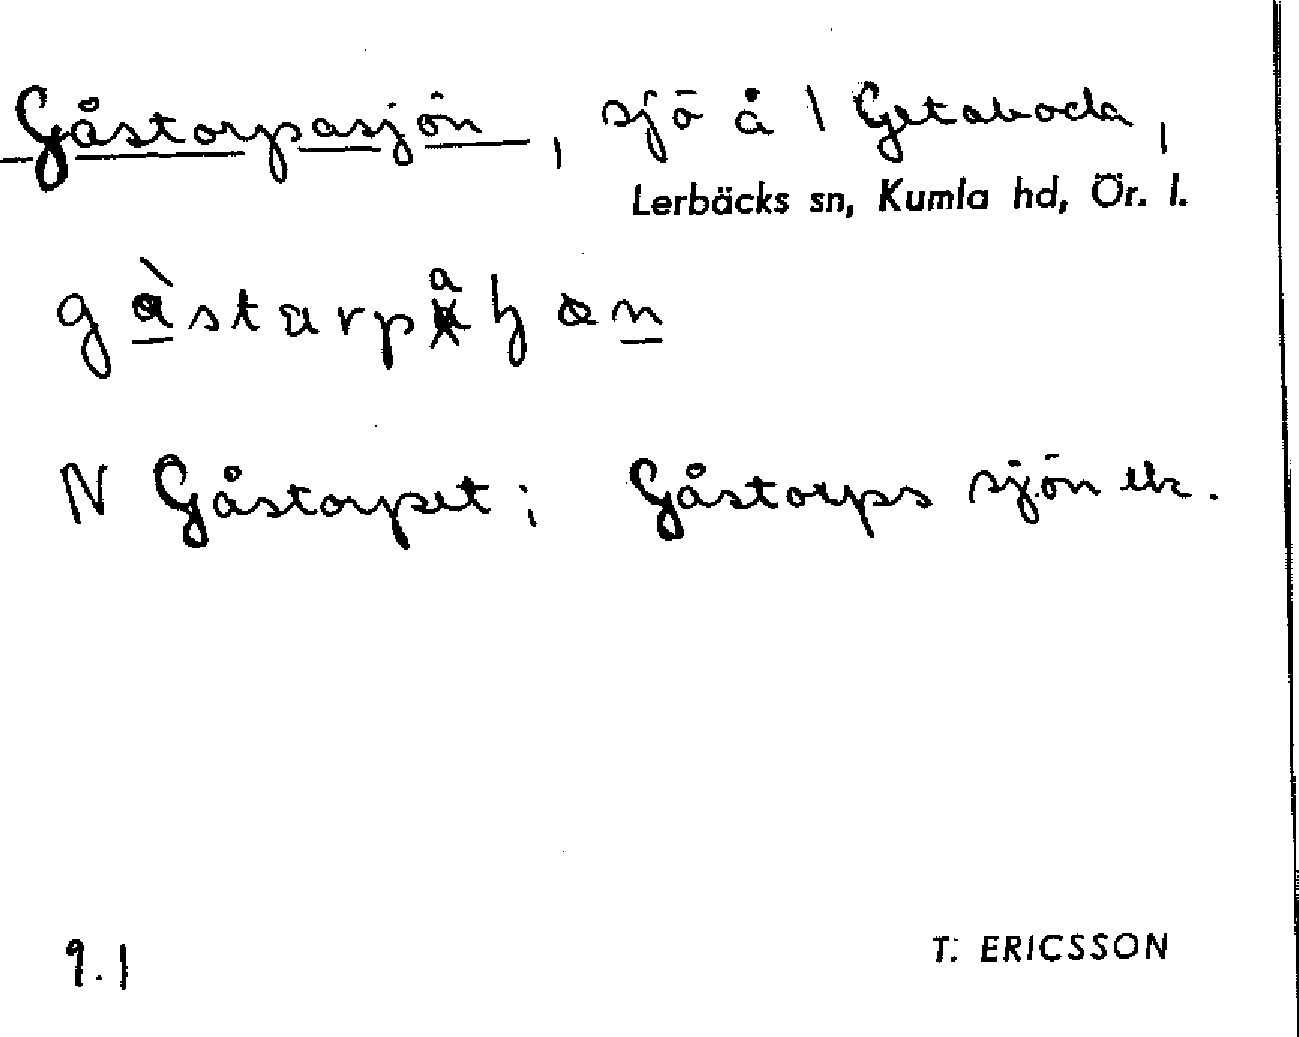 Gåstorpasjön, sjö å \ Getaboda,
Lerbäcks sn, Kumla hd, Ör. l.
N Gåstorpet; Gåstorps sjön ek.
9.1
T. ERICSSON